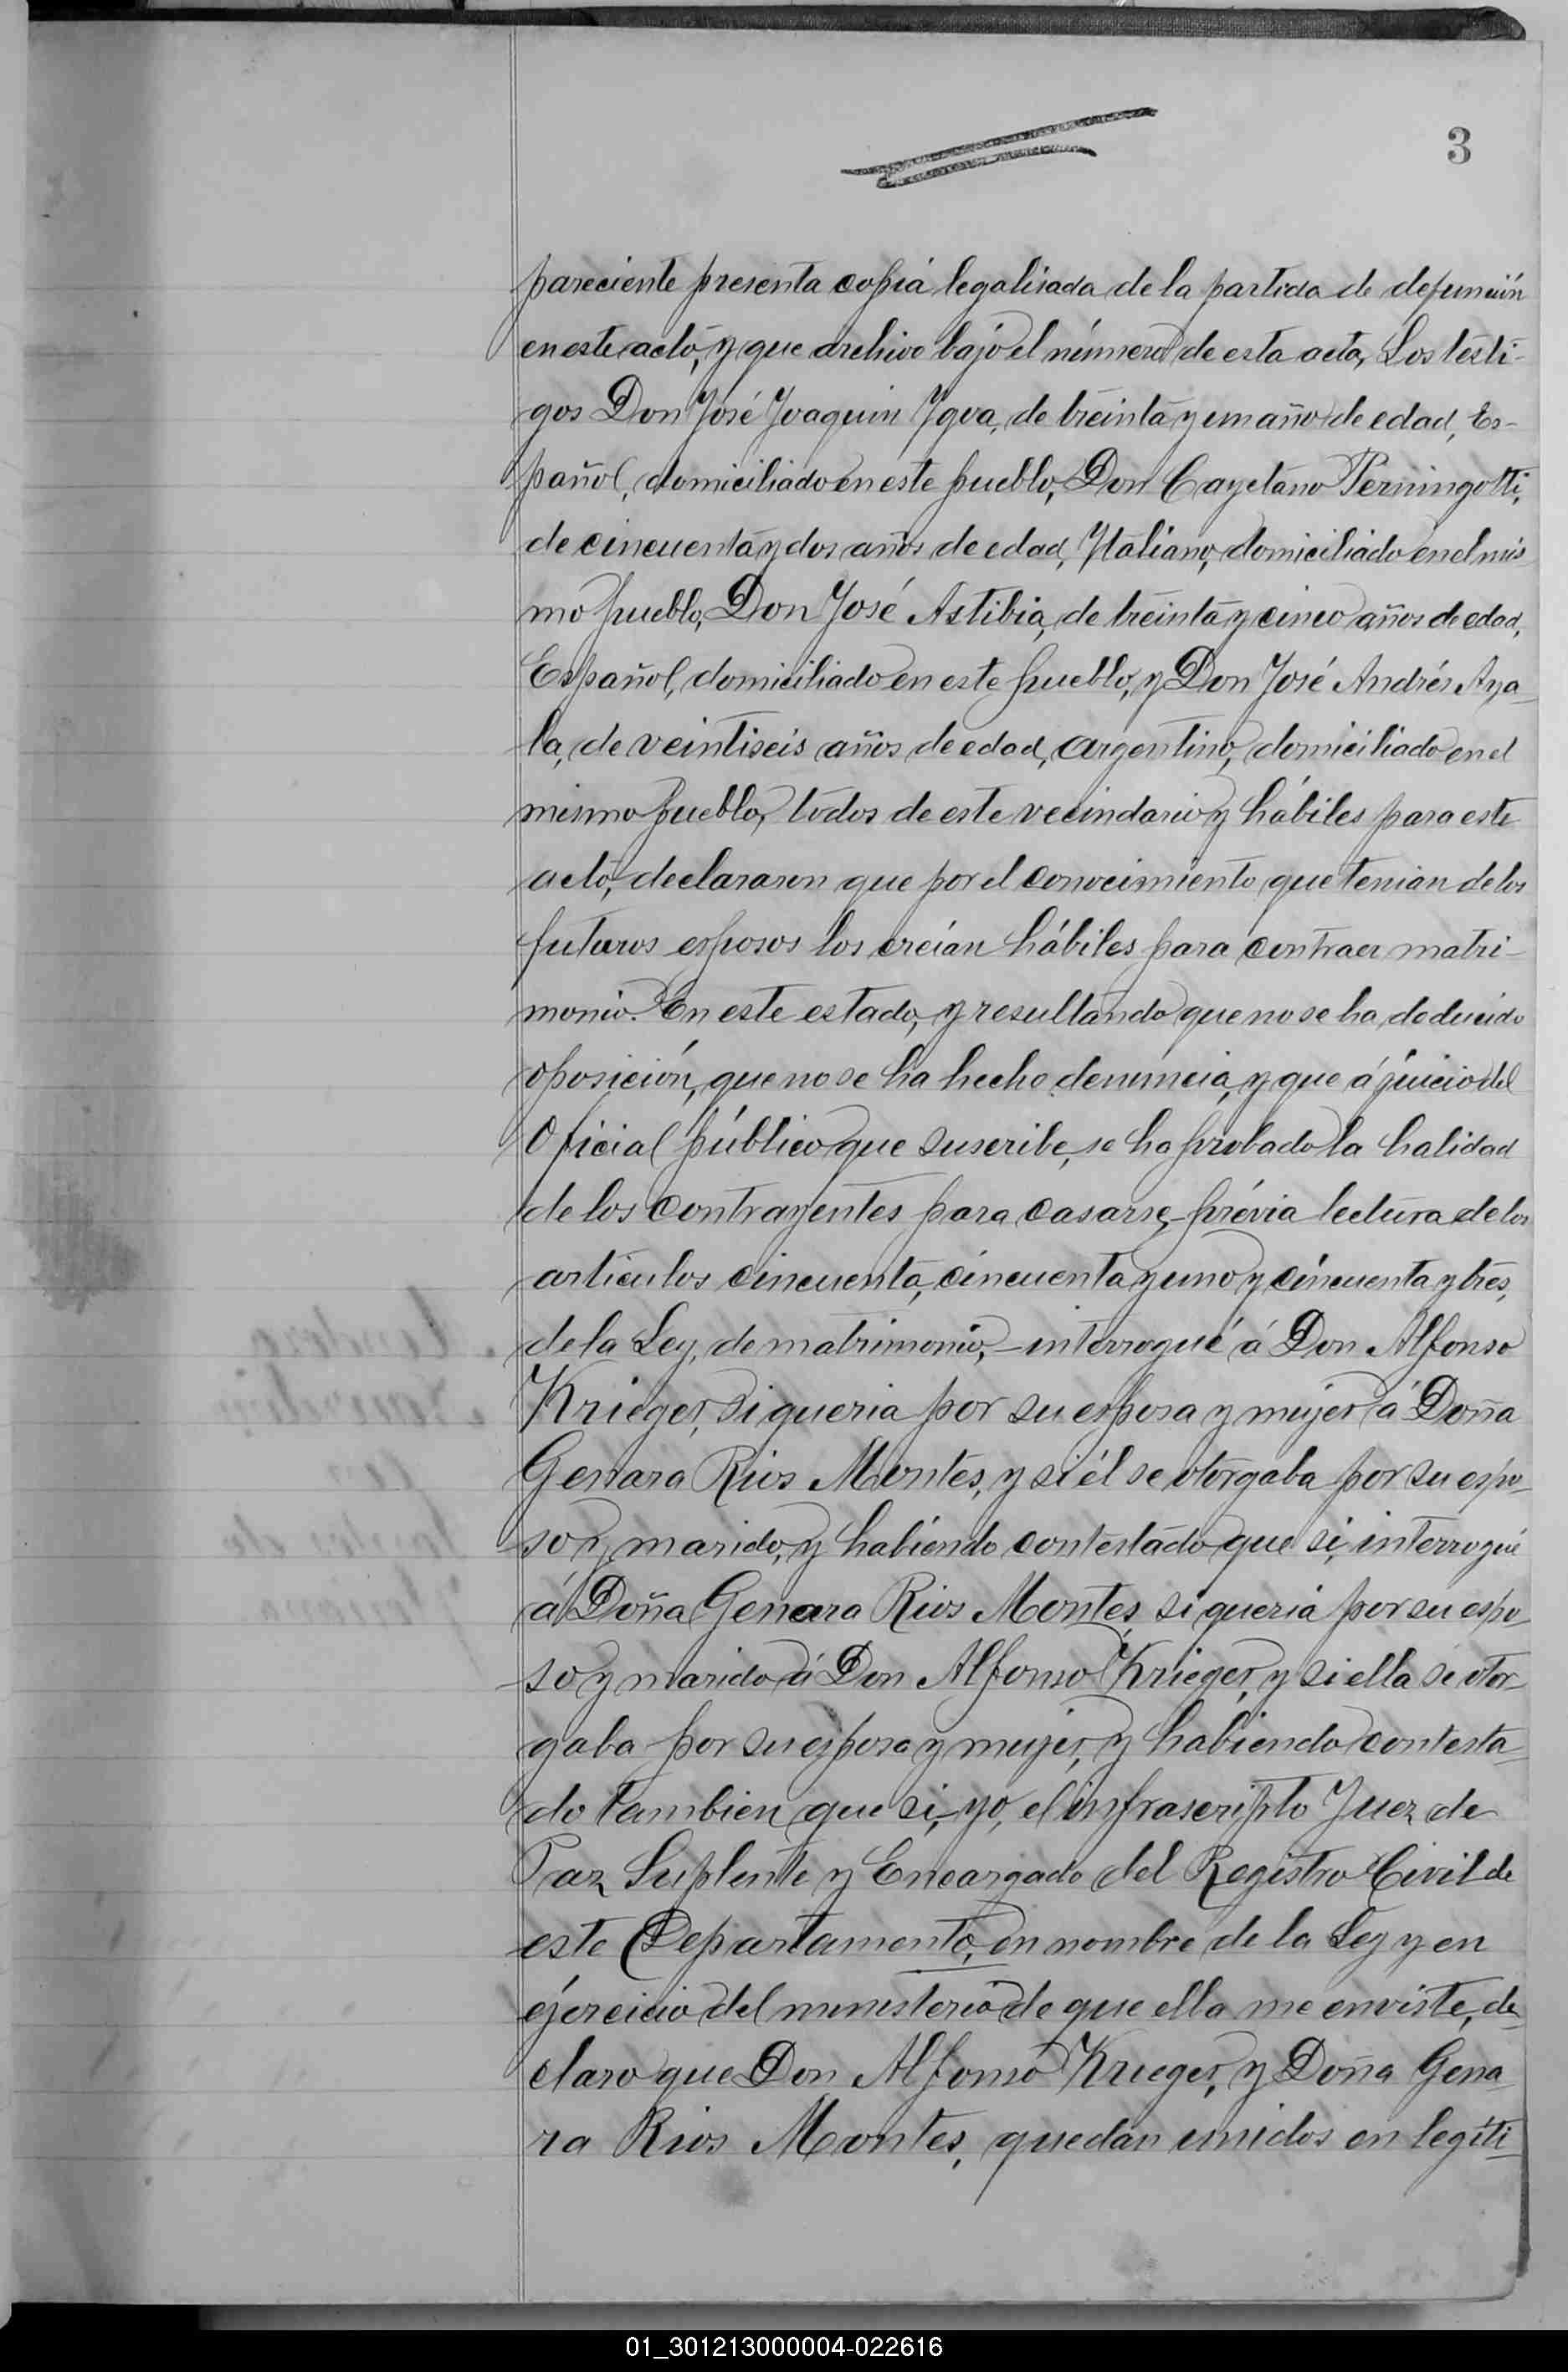 3
pareciente presenta copia legalisada de la partida de defunción
en este acto, y que archivo bajo el número de esta acta, Los testi-
gos Don José Joaquin Ygoa, de treinta y un año de edad, Es-
pañol, domiciliado en este pueblo, Don Cayetano Perningotti,
de cincuenta y dos años de edad, Ytaliano, domiciliado en el mis
mo pueblo, Don José Astibia, de treinta y cinco años de edad,
Español, domiciliado en este pueblo, y Don José Andrés Aya-
la, de veintiseis años de edad, argentino, domiciliado en el
mismo pueblo, todos de este vecindario y hábiles para este
acto, declararon que por el conocimiento que tenian de los
futuros esposos los creían hábiles para contraer matri-
monio. En este estado, y resultando que no se ha deducido
oposición, que no se ha hecho denuncia, y que á juicio del
Oficial público que suscribe, se ha probado la halidad
de los contrayentes para casarse, prévia lectura de los
artículos cincuenta, cincuenta y uno y cincuenta y tres,
de la Ley, de matrimonio, - interrogué á Don Alfonso
Krieger, si queria por su esposa y mujer á Doña
Genara Rios Montes, y si él se otorgaba por su espo-
so y marido, y habiendo contestado que si, interrogué
á Doña Genara Rios Montes, si queria por su espo-
so y marido á Don Alfonso Krieger, y si ella se otor-
gaba por su esposa y mujer, y habiendo contesta-
do tambien que si, yo, el infrascripto Juez de
Paz Suplente y Encargado del Registro Civil de
este Departamento, en nombre de la Ley y en
ejercicio del ministerio de que ella me enviste, de-
claro que Don Alfonso Krieger, y Doña Gena-
ra Rios Montes, quedan unidos en legíti-
01_301213000004-022616